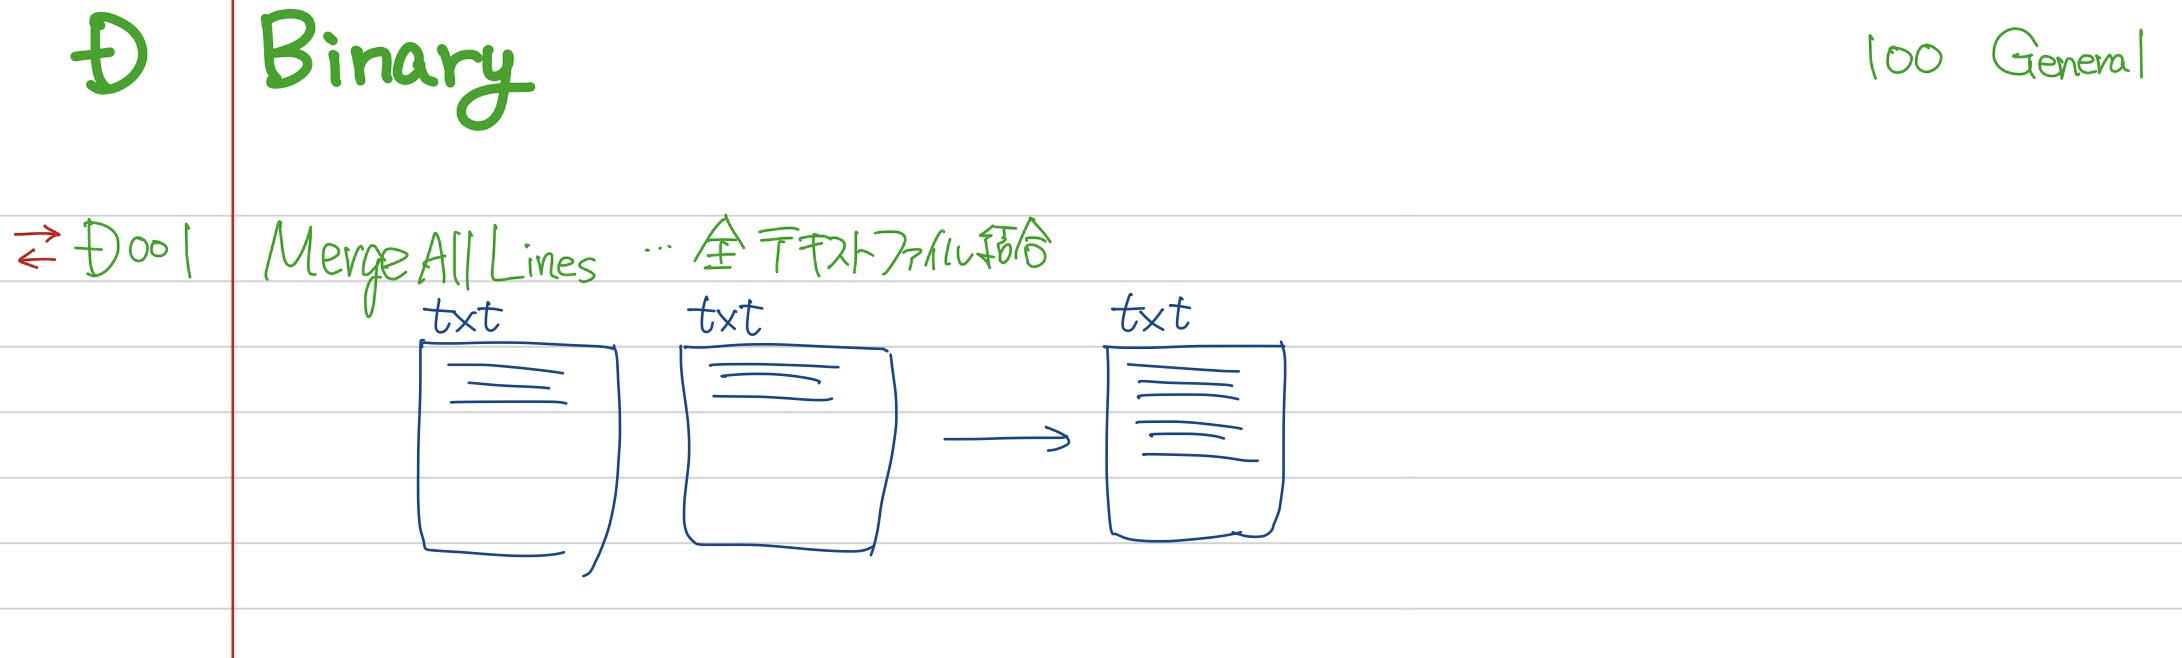 Đ Binary 100 General
⇄ Đ001 MergeAllLines … 全テキストファイル結合
txt txt txt